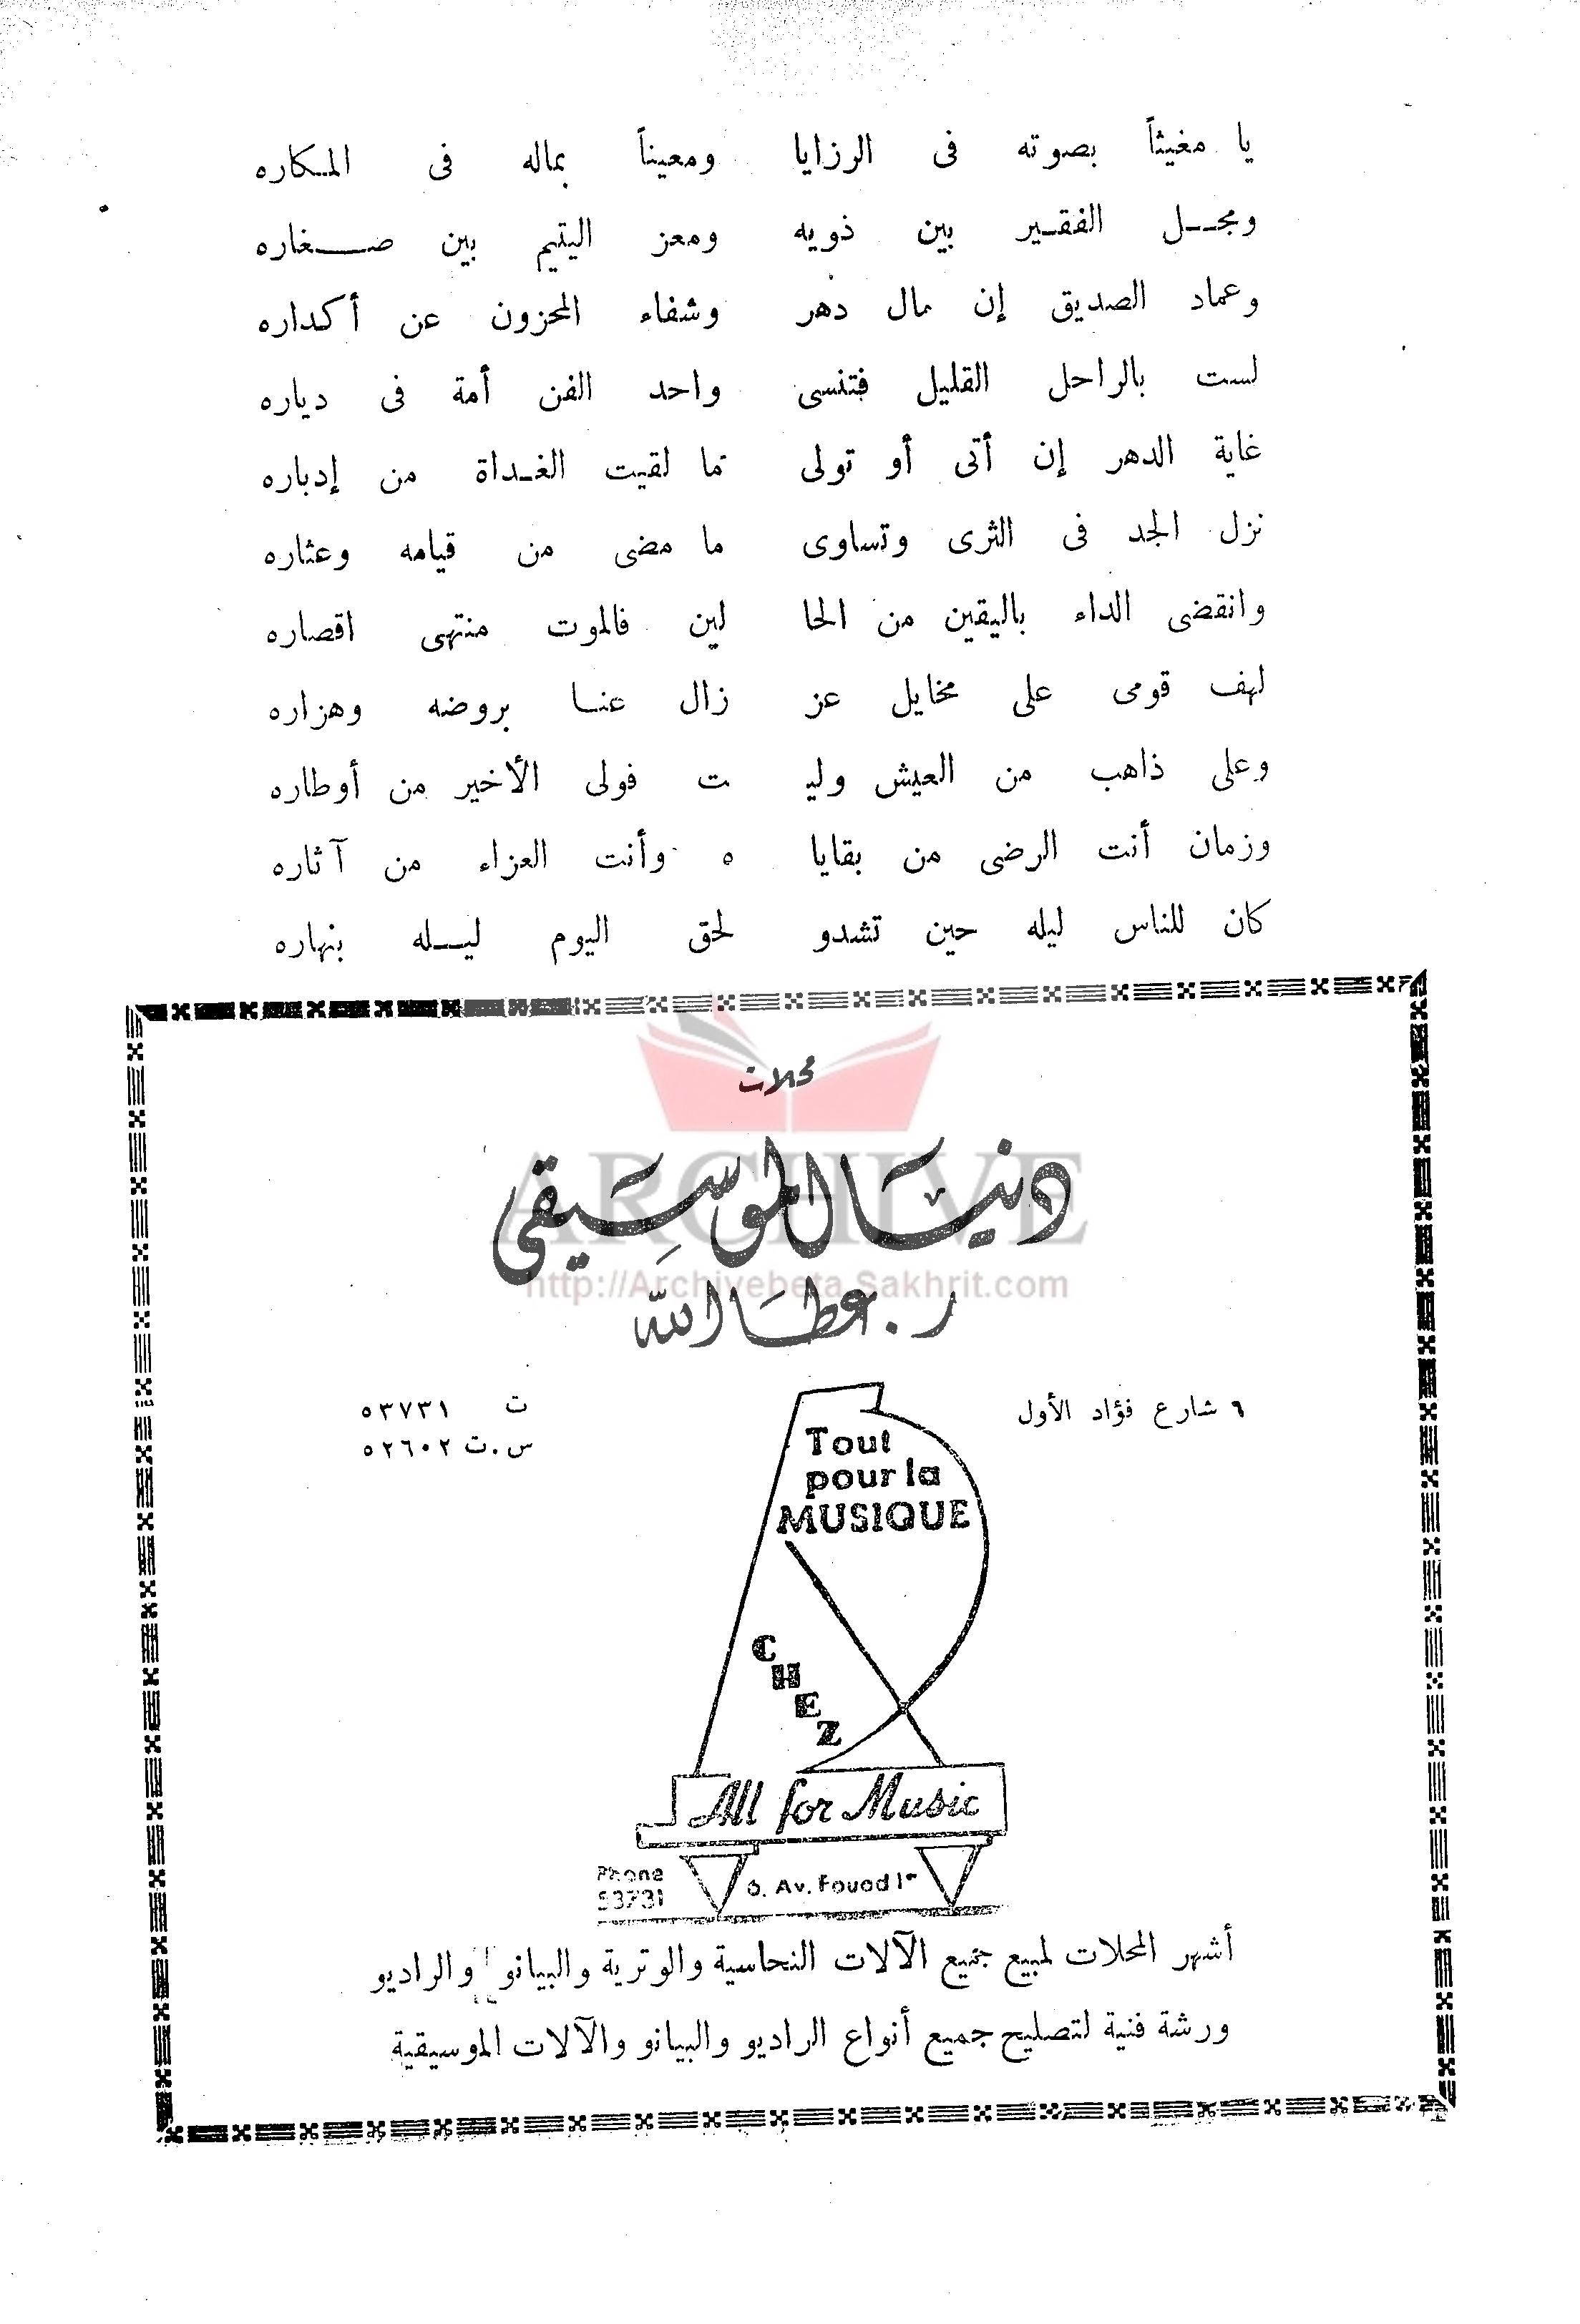 يا مغيثاً بصوته فى الرزايا ومعيناً بماله فى المكاره
ومجل الفقير بين ذويه ومعز اليتيم بين صغاره
وعماد الصديق إن مال دهر وشفاء المحزون عن أكداره
لست بالراحل القليل فتنسى واحد الفن أمة فى دياره
غاية الدهر إن أتى أو تولى ما لقيت الغداة من إدباره
نزل الجد فى الثرى وتساوى ما مضى من قيامه وعثاره
وانقضى الداء باليقين من الحا لين فالموت منتهى اقصاره
لهف قومى على مخايل عز زال عنا بروضه وهزاره
وعلى ذاهب من العيش وليـ ـت فولى الأخير من أوطاره
وزمان أنت الرضى من بقايا ه وأنت العزاء من آثاره
كان للناس ليله حين تشدو لحق اليوم ليله بنهاره
محلات
دنيا الموسيقى
ARCHIVE
http://Archivebeta.Sakhrit.com
ر. عطا الله
٦ شارع فؤاد الأول ت ٥٣٧٣١
س.ت ٥٢٦٠٢
Tout
pour la
MUSIQUE
CHEZ
All for Music
Phone
53731
6. Av. Fouad Ier
أشهر المحلات لمبيع جميع الآلات النحاسية والوترية والبيانو والراديو
ورشة فنية لتصليح جميع أنواع الراديو والبيانو والآلات الموسيقية